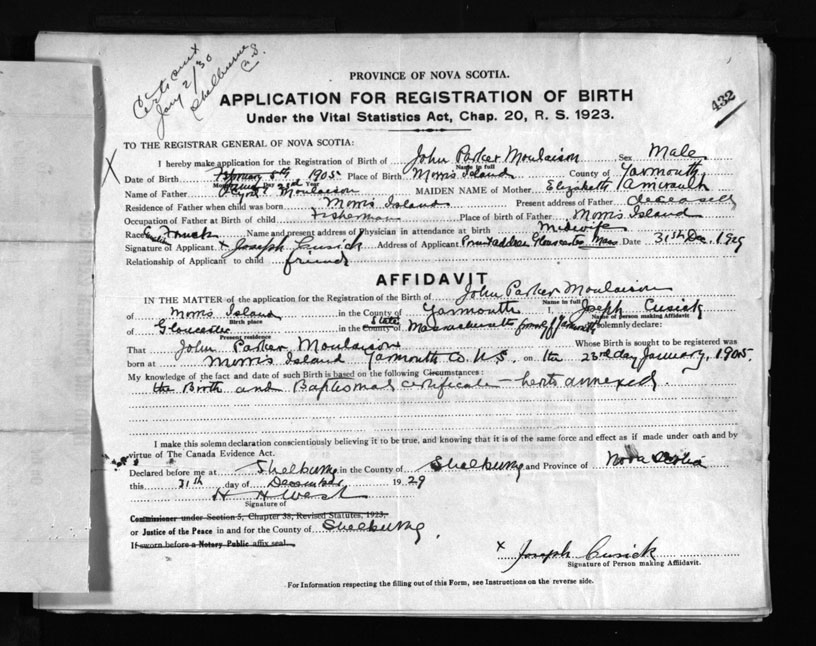 Jany 2/30
Shelburne
432
PROVINCE OF NOVA SCOTIA.
APPLICATION FOR REGISTRATION OF BIRTH
Under the Vital Statistics Act, Chap. 20, R. S. 1923.
TO THE REGISTRAR GENERAL OF NOVA SCOTIA:
X I hereby make application for the Registration of Birth of John Parker Moulaison Sex Male
Name in full
Date of Birth February 8th 1905 Place of Birth Morris Island County of Yarmouth
Month Day Year
Name of Father Moulaison MAIDEN NAME of Mother Elizabeth Amirault
Residence of Father when child was born Morris Island Present address of Father deceased
Occupation of Father at Birth of child Fisherman Place of birth of Father Morris Island
Race French Name and present address of Physician in attendance at birth Midwife
Signature of Applicant x Joseph Cusick Address of Applicant Present address Gloucester Mass Date 31st Dec. 1929
Relationship of Applicant to child friend
AFFIDAVIT
IN THE MATTER of the application for the Registration of the Birth of John Parker Moulaison
Name in full
of Morris Island in the County of Yarmouth I, Joseph Cusick
Birth place Name of person making Affidavit
of Gloucester in the County of State Massachusetts formerly of Yarmouth solemnly declare:
Present residence
That John Parker Moulaison Whose Birth is sought to be registered was
born at Morris Island Yarmouth Co. N.S. on the 23rd day January, 1905.
My knowledge of the fact and date of such Birth is based on the following Circumstances:
the Birth and Baptismal certificate hereto annexed.
I make this solemn declaration conscientiously believing it to be true, and knowing that it is of the same force and effect as if made under oath and by
virtue of The Canada Evidence Act.
Declared before me at Shelburne in the County of Shelburne and Province of Nova Scotia
this 31th day of December 1929
H H West
Signature of
Commissioner under Section 5, Chapter 38, Revised Statutes, 1923,
or Justice of the Peace in and for the County of Shelburne.
If sworn before a Notary Public affix seal.
x Joseph Cusick
Signature of Person making Affidavit.
For Information respecting the filling out of this Form, see Instructions on the reverse side.